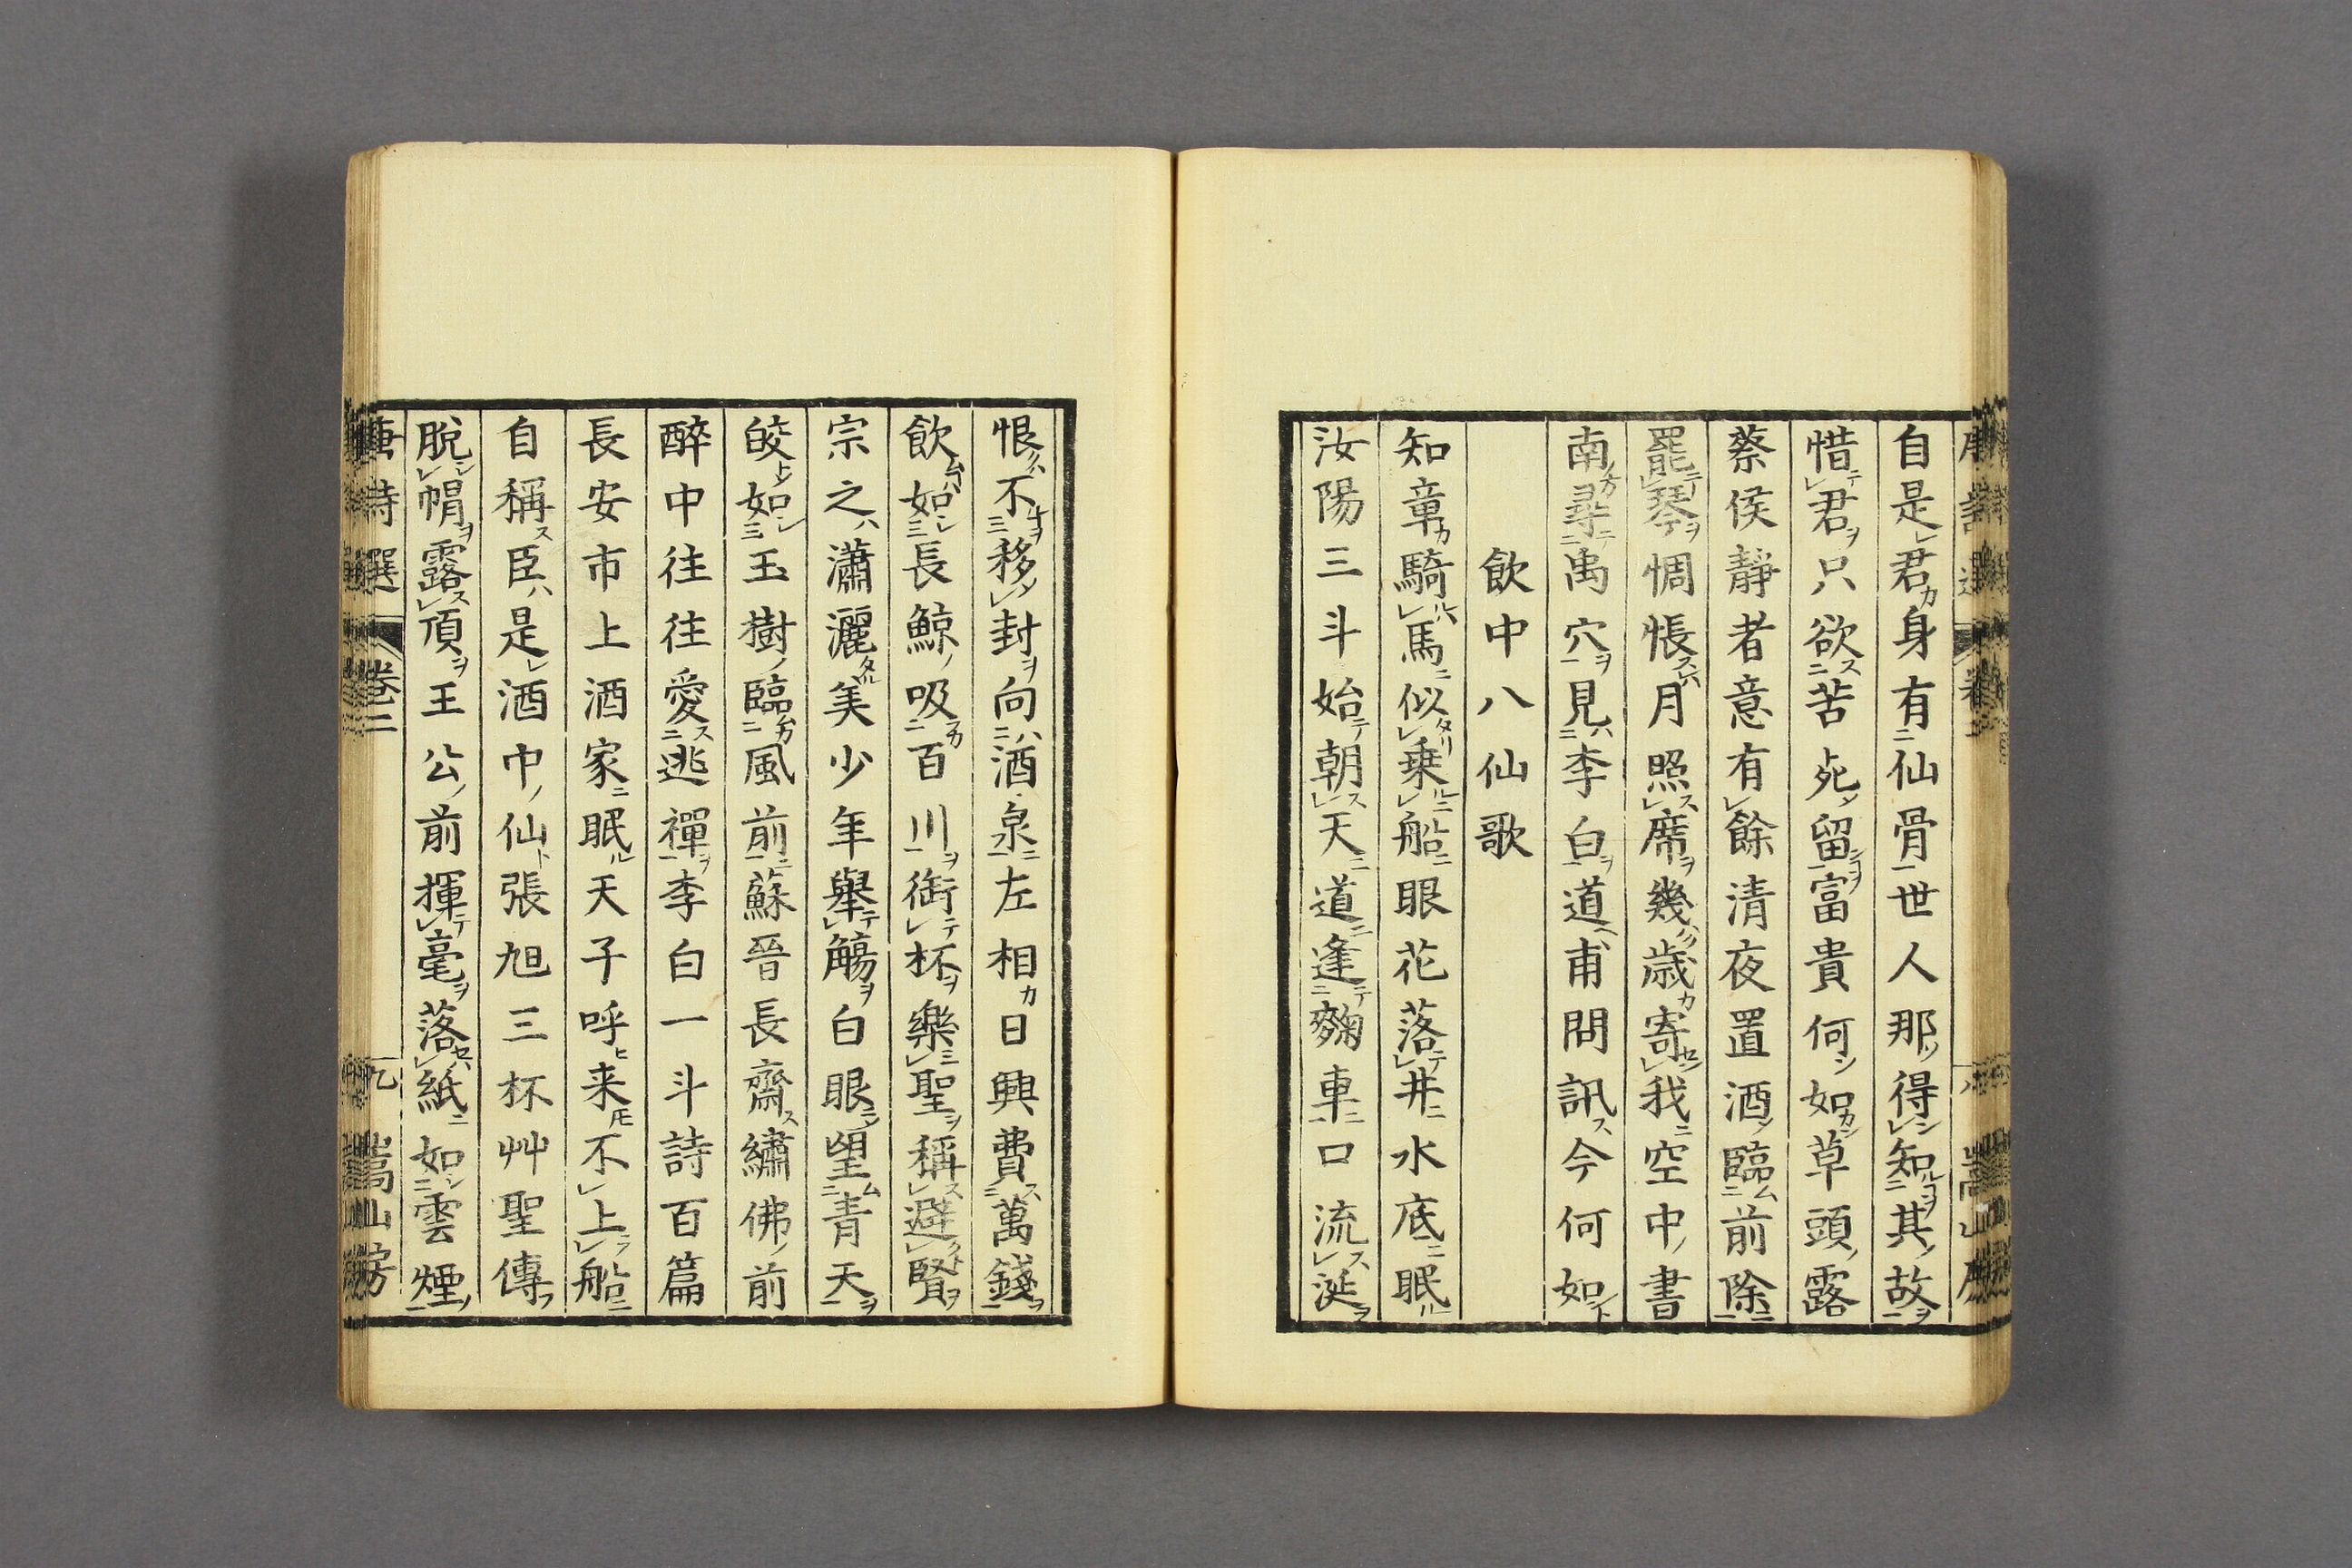 自是君身有仙骨世人那得知其故
惜君只欲苦死留富貴何如草頭露
蔡侯靜者意有餘清夜置酒臨前除
罷琴惆悵月照席幾歳寄我空中書
南尋禹穴見李白道甫問訊今何如
飲中八仙歌
知章騎馬似乗船眼花落井水底眠
汝陽三斗始朝天道逢麴車口流涎
恨不移封向酒泉左相日興費萬錢
飲如長鯨吸百川銜杯樂聖稱避賢
宗之瀟灑美少年舉觴白眼望青天
皎如玉樹臨風前蘇晉長齋繡佛前
醉中往往愛逃禪李白一斗詩百篇
長安市上酒家眠天子呼来不上船
自稱臣是酒中仙張旭三杯艸聖傳
脫帽露頂王公前揮毫落紙如雲煙
唐詩選 卷二 九 嵩山房